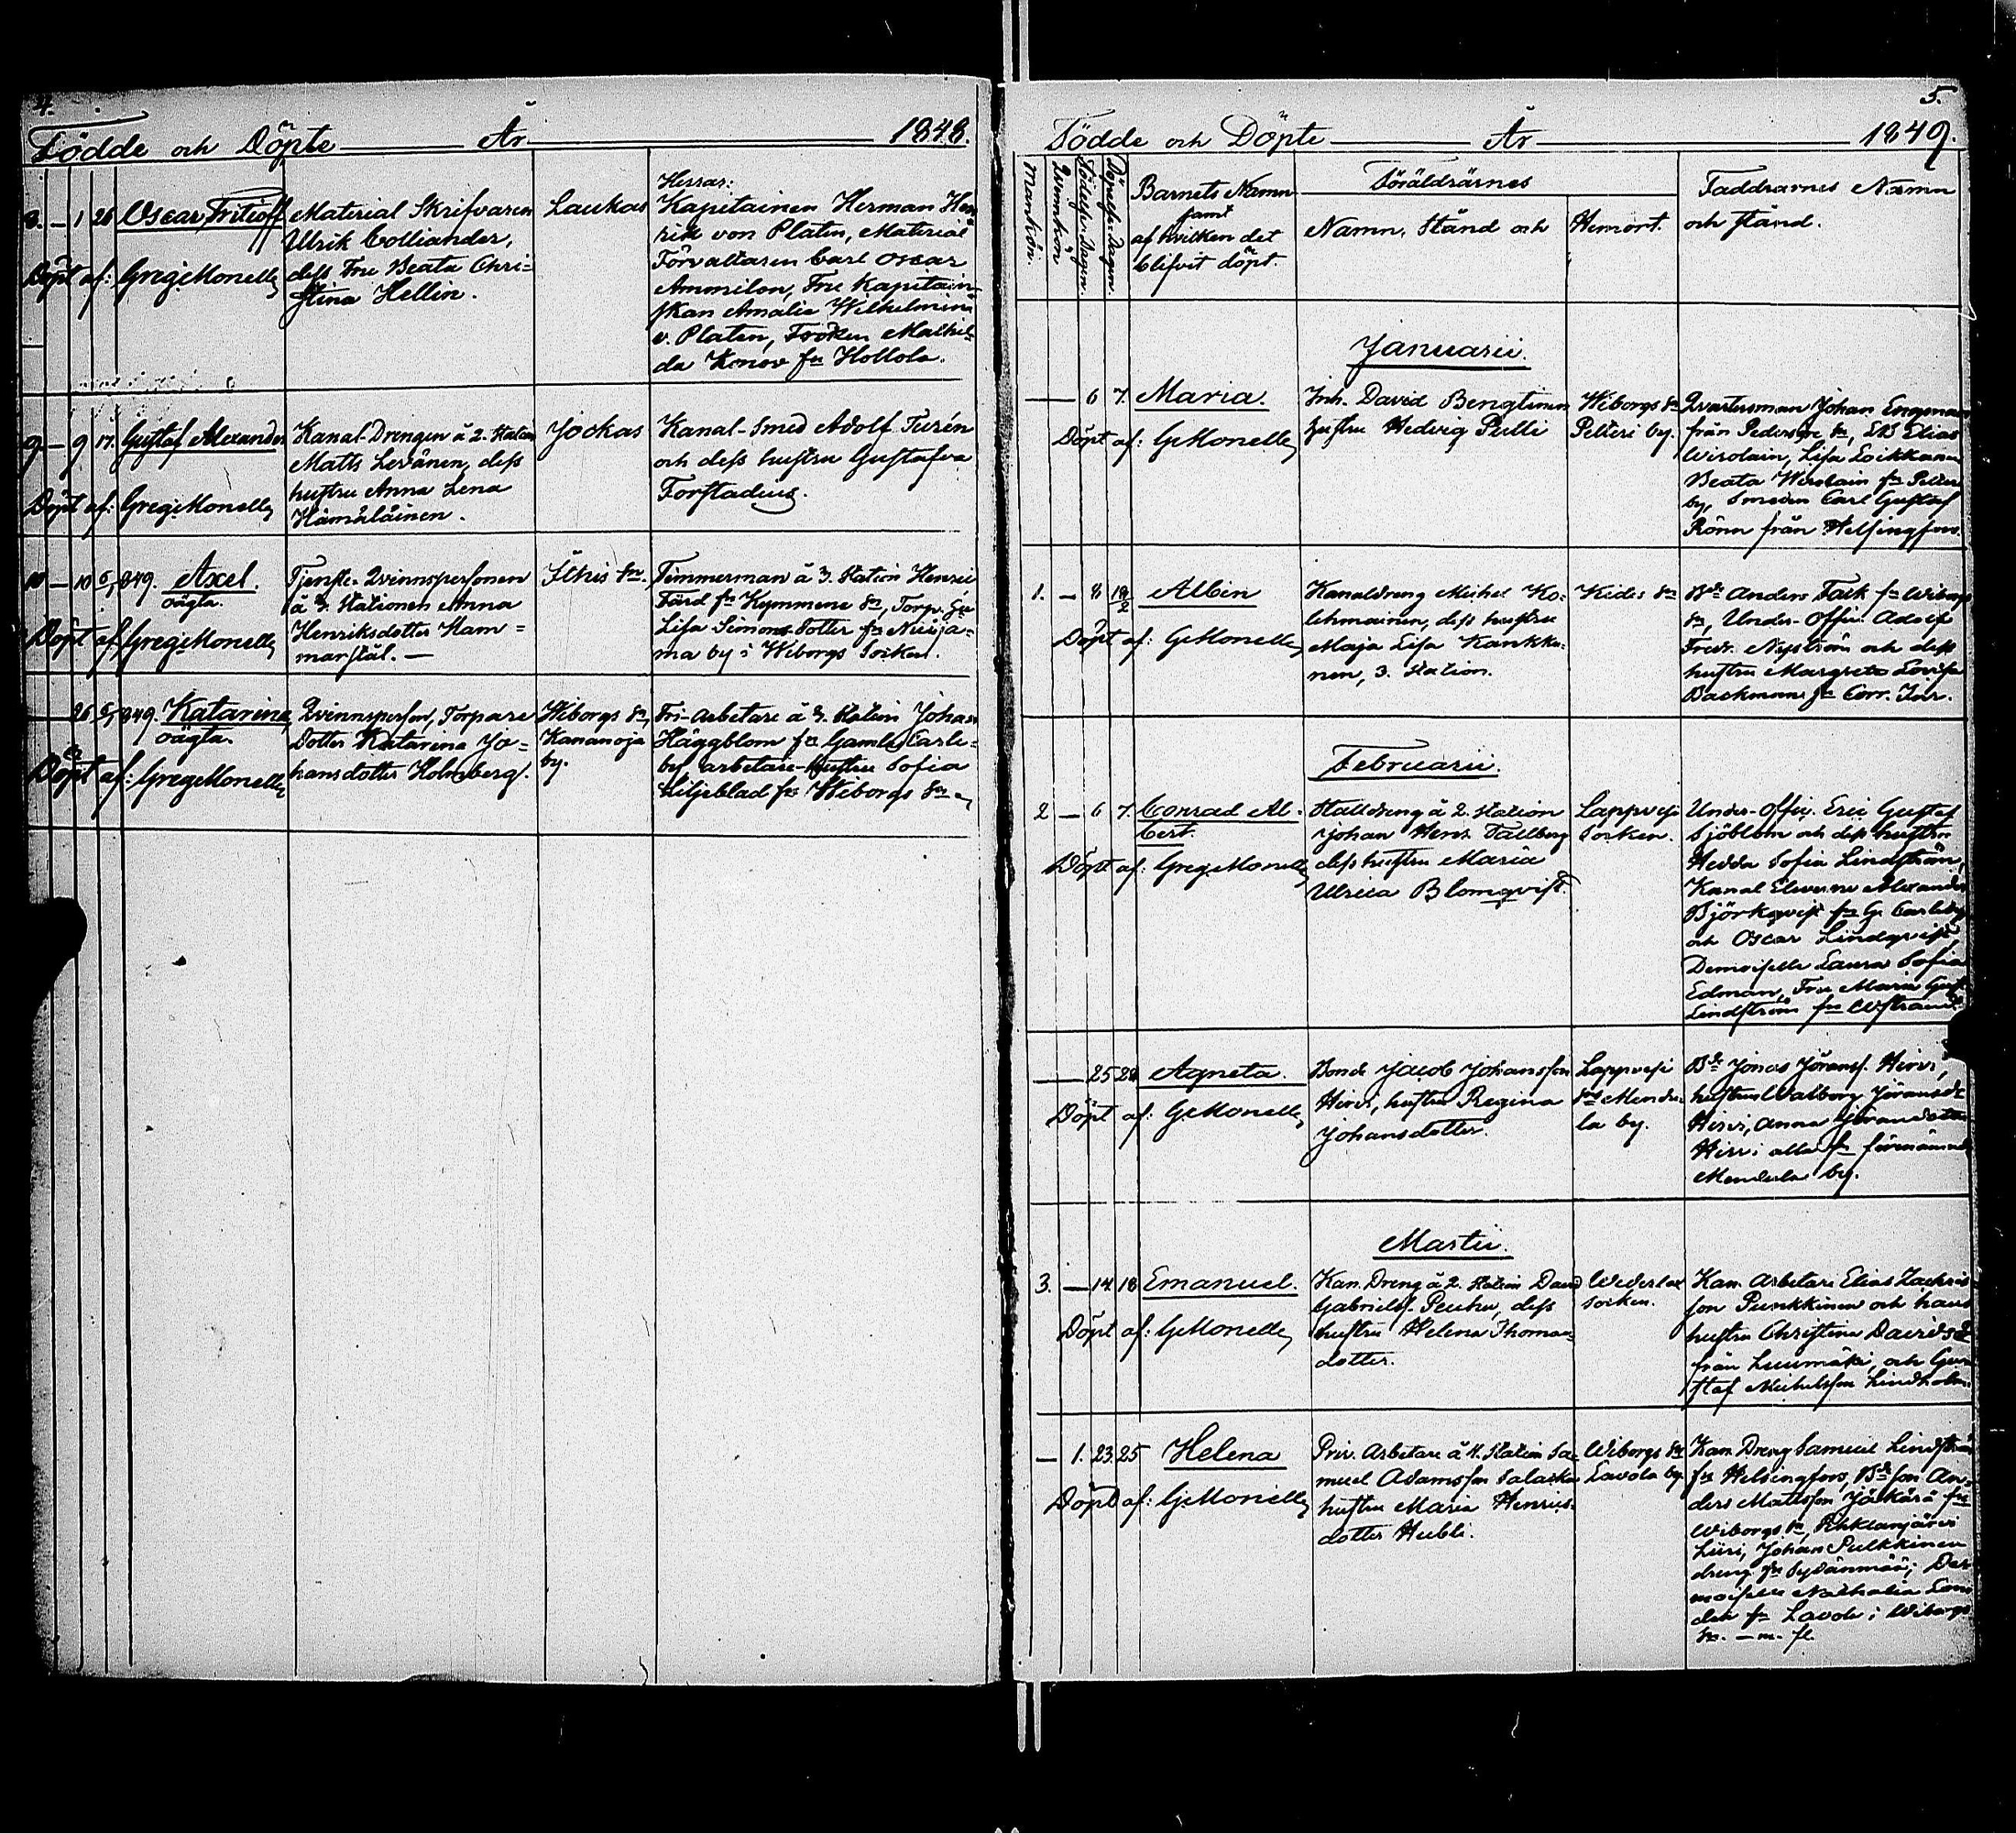 4.
Födde och Döpte År 1848.
8. — 1 26 Oscar Fritioff
Döpt af: Greg: Monell
Material Skrifvaren
Ulrik Colliander,
dess Fru Beata Chri=
stina Hellin.
Laukas
Herrar:
Kapitainen Herman Hen=
rik von Platen, Material
Förvaltaren Carl Oscar
Ammilon, Fru Kapitain=
skan Amalia Wilhelmina
v. Platen, Fröken Mathil=
da Konow fn Hollola.
9 — 9 17. Gustaf Alexander
Döpt af: Greg: Monell
Kanal-Drengen å 2. Station
Matts Levänen, dess
hustru Anna Lena
Hämäläinen.
Jockas
Kanal-Smed Adolf Turén
och dess hustru Gustafva
Forstadius.
10 — 10 5/1 849. Axel.
oägta.
Döpt af Greg: Monell
Tjenste-Qvinnspersonen
å 3. Stationen Anna
Henriksdotter Ham=
marstål. —
Ithis sn.
Timmerman å 3. Station Henric
Färd fn Kymmene sn, Torp.
Lisa Simons-Dotter fn Nuija=
ma by i Wiborgs Socken.
26 849. Katarina,
oägta.
Döpt af: Greg: Monell
Qvinnsperson, Torpare
Dotter Katarina Jo=
hansdotter Holmberg.
Wiborgs sn
Kananoja
by.
Fri-Arbetare å 3. Station Johan
Häggblom fn Gamla Carle=
by, arbetare-hustru Sofia
Liljeblad fn Wiborgs sn
5.
Födde och Döpte År 1849.
Mankön.
Qvinnkön
Födelse-Dagen.
Döpelse-Dagen.
Barnets Namn
samt
af hvilken det
blifvit döpt.
Föräldrarnes
Namn, Stånd och Hemort.
Faddrarnes Namn
och stånd.
Januarii.
— 6 7. Maria.
Döpt af: G. Monell
Inh. David Bengtinen
hustru Hedvig Pulli
Wiborgs sn
Pelteri by.
Qvartersman Johan Engman
från Pedersöre sn, Elias
Wirolain, Lisa Loikkanen
Beata Wirolain fn Pelteri
by, Smeden Carl Gustaf
Rönn från Helsingfors.
1. — 8 18/2 Albin
Döpt af: G. Monell
Kanaldreng Michel Ko=
lehmainen, dess hustru
Maja Lisa Kankku=
nen, 3. Station.
Kides sn
Bde Anders Falk fn Wiborgs
sn, Under-Offic. Adolf
Fredr. Nyström och dess
hustru Margreta Lovisa
Backman fn Corr. Inr.
Februarii.
2 — 6 7. Conrad Al=
bert.
Döpt af: Greg. Monell
Stalldreng å 2. Station
Johan Henr. Tallberg
dess hustru Maria
Ulrica Blomqvist.
Lappvesi
Socken.
Under-Offic. Eric Gustaf
Sjöblom och dess hustru
Hedda Sofia Lindström,
Kanal Eleverne Alexander
Björkqvist fn G. Carleby
och Oscar Lindqvist
Demoiselle Laura Sofia
Edman, Fru Maria Gust.
Lindström fn
— 25 28 Agneta.
Döpt af: G. Monell
Bonde Jacob Johansson
Hirvi, hustru Regina
Johansdotter.
Lappvesi
sn Mendu=
la by.
Bde Jonas Jöranss. Hirvi,
hustrun Walborg Jöransdr
Hirvi, Anna Jöransdotter
Hirvi alla fn förenämnde
Mendula by.
Martii.
3. — 14 18 Emanuel.
Döpt af: G. Monell
Kan. Dreng å 2. Station David
Gabrielss. Peuhu, dess
hustru Helena Thomas=
dotter.
Wederlax
socken.
Kan. Arbetare Elias Zachris=
son Punkkinen och hans
hustru Christina Davidsdr
från Luumäki, och Gu=
staf Michelsson Lindholm.
— 1. 23. 25 Helena
Döpt af: G. Monell
Priv. Arbetare å 4. Station Sa=
muel Adamsson Salaka
hustru Maria Henrics=
dotter Hubli.
Wiborgs sn
Lavola by.
Kan. Dreng Samuel Lindström
fn Helsingfors, Bde son An=
ders Mattsson Jäskärä fn
Wiborgs sn,
Liisi, Johan Pulkkinen
dreng fn Sydänmää, De=
moiselle Nathalia
fn Lavola i Wiborgs
sn. — m. fl.